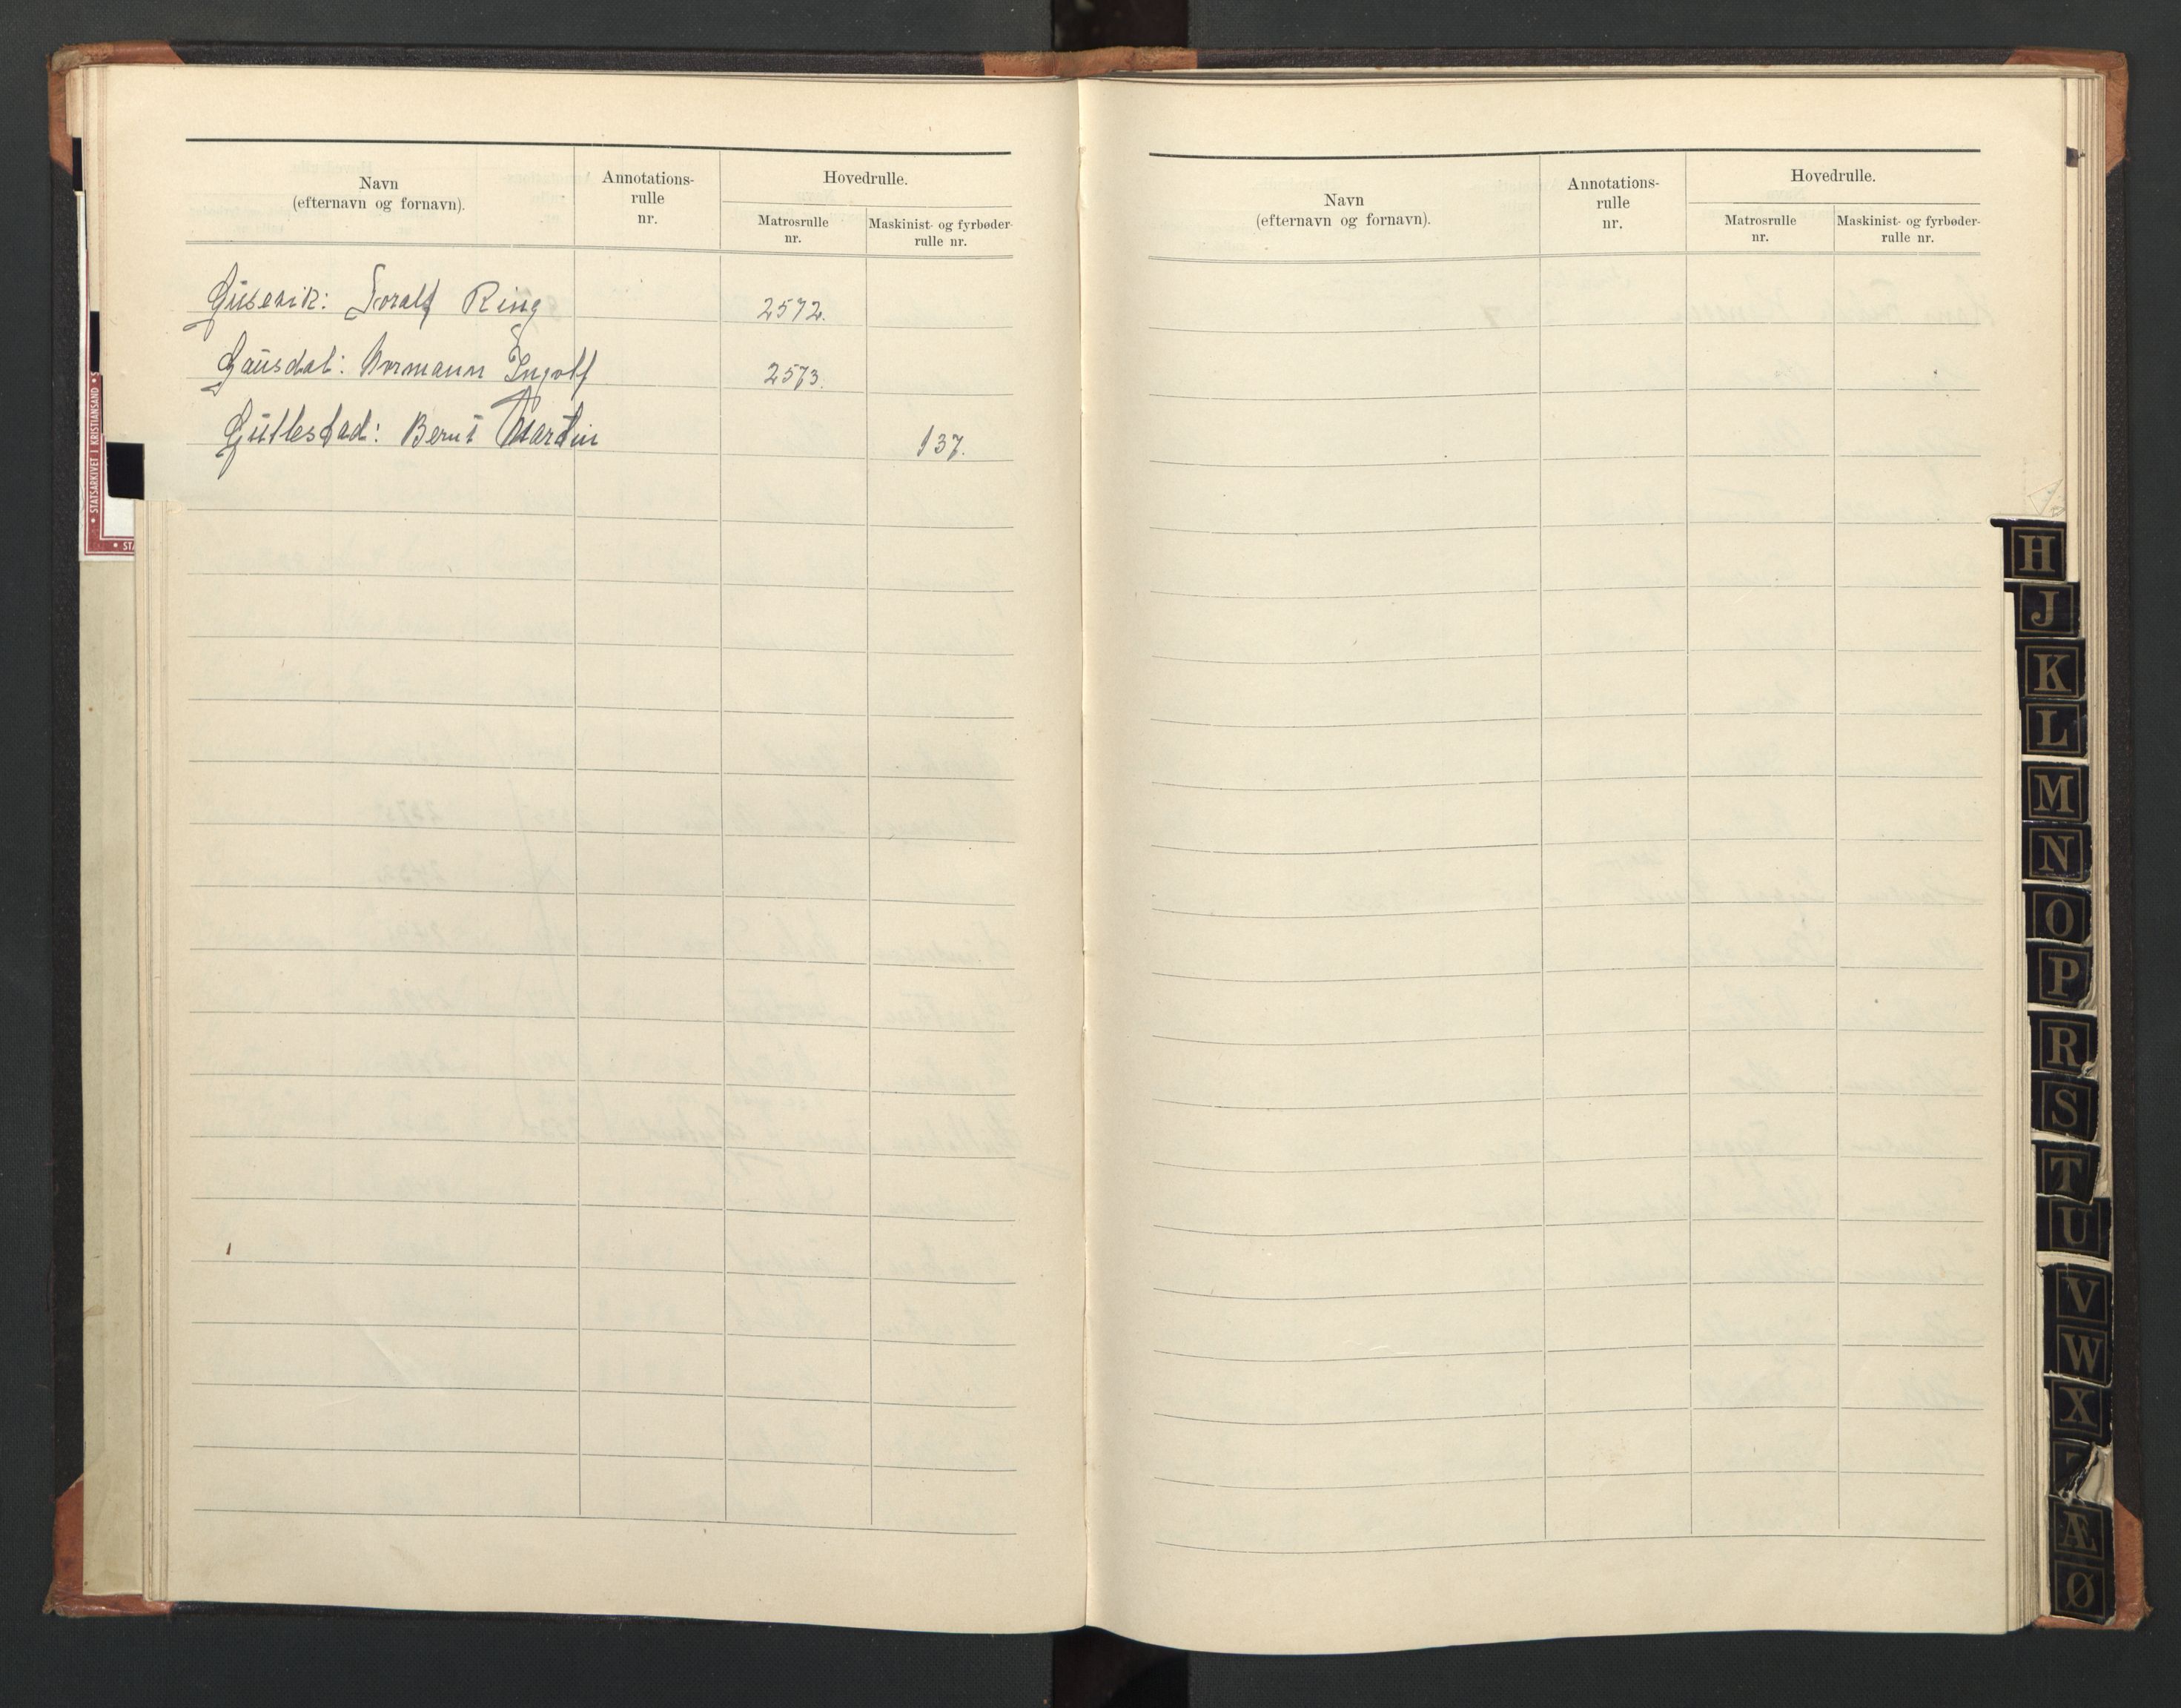 Navn
(efternavn og fornavn).
Annotations-
rulle
nr.
Hovedrulle.
Matrosrulle
nr.
Maskinist- og fyrbøder-
rulle nr.
Gusevik: Toralf Ring 2572.
Gausdal: Normann Ingolf 2573.
Gullestad: Bernt Martin 137.
STATSARKIVET I KRISTIANSAND
Navn
(efternavn og fornavn).
Annotations-
rulle
nr.
Hovedrulle.
Matrosrulle
nr.
Maskinist- og fyrbøder-
rulle nr.
H
J
K
L
M
N
O
P
R
S
T
U
V
W
X
Æ
Ø